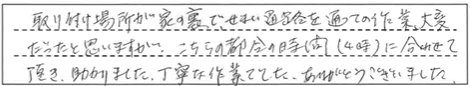 取り付け場所が家の裏で、せまい通路を通っての作業、大変
だったと思いますが、こちらの都合の時間(4時)に合わせて
頂き、助かりました。丁寧な作業でした。ありがとうございました。